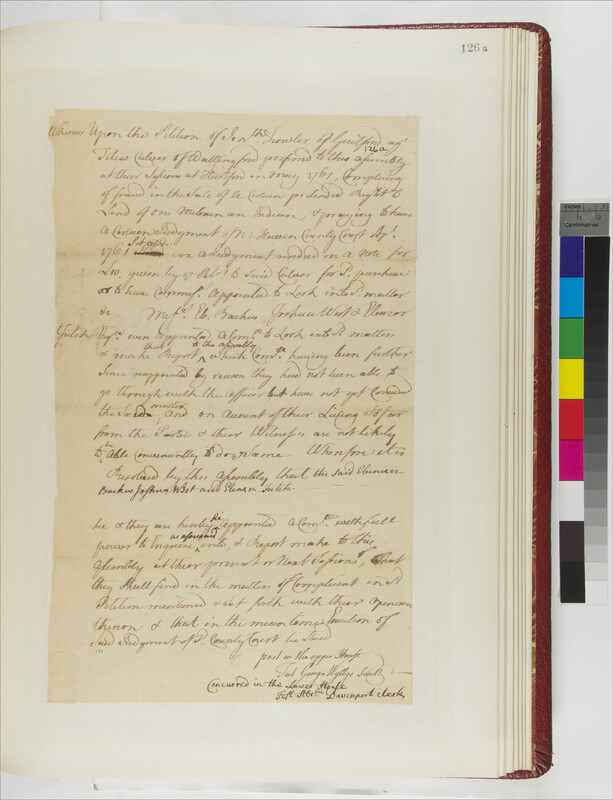 126a
Whereas Upon the Petition of Jonth. Fowler of Guilford agt.
126a
Titus Culver of Wallingford prefered to this assembly
at their Session at Hartford in may 1761, Complaining
of fraud in the Sale of a Certain pretended Right to
Land of one an Indian, & praying to have
a Certain Judgment of N. Haven County Court Apl.
1761 Set aside was a Judgment on a Note for
£10, given by sd to Said Culver for sd purchase
or to have Commrs. Appointed to Look into sd matter
&c Messrs. Eb. Backus Joshua West & Eleazar
Fitch Esqrs. were appointed a Comtee to Look into sd matters
& make Report to the assembly which Comtee having been further
Since reappointed by reason they had not been able to
go through with the affair but have not yet
the Same matter, and on account of their Living So far
from the Parties & their Witnesses are not likely
to be Able Conveniently to do ye Same Wherefore it is
Resolved by this assembly that the said Ebenezer
Backus Joshua West and Eleazar Fitch
be & they are hereby Re Appointed a Comtee with full
power to Enquire as aforesaid into, & Report make to this
assembly at their present or Next Sessions, what
they Shall find in the matters of Complaint in sd
Petition mentioned & set forth with their opinion
thereon & that in the meantime Execution of
Said Judgment of sd County Court be Staid
past in the upper House
Test George Wyllys Secretr
Concurred in the Lower House
Test Abrm Davenport Clerk